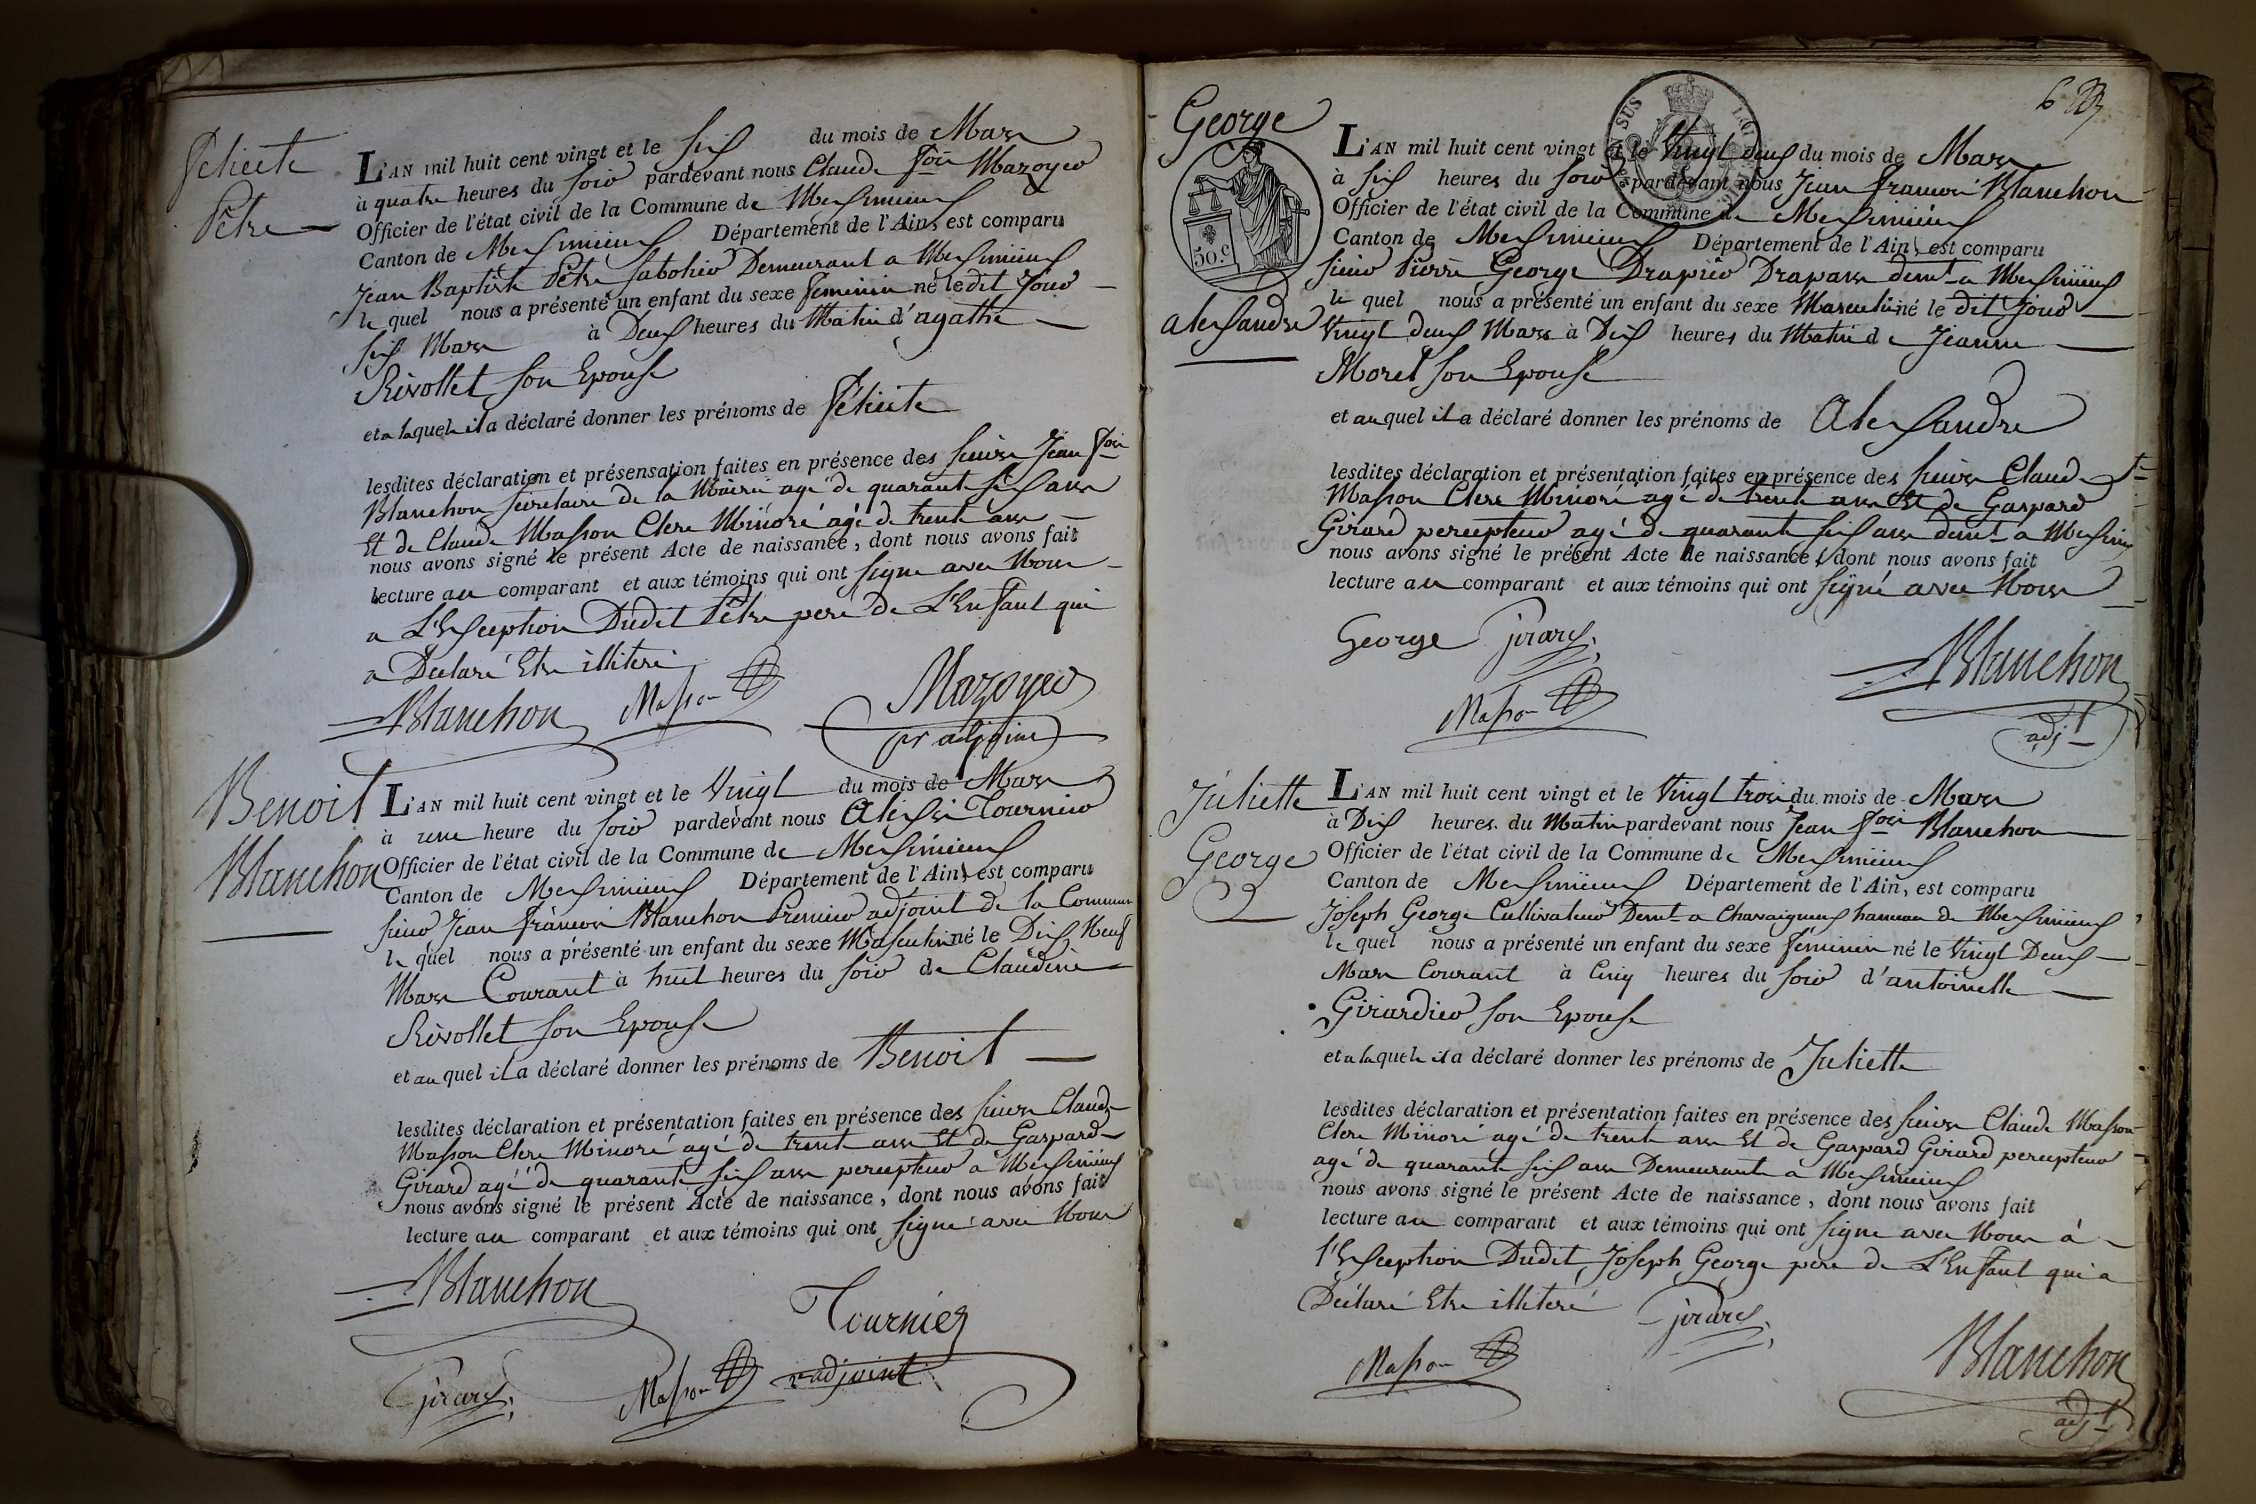 Félicité
Pêtre
L'AN mil huit cent vingt et le six du mois de Mars
à quatre heures du soir pardevant nous Claude fois Mazoyer
Officier de l'état civil de la Commune de Meximieux
Canton de Meximieux Département de l'Ain, est comparu
Jean Baptiste Pêtre sabotier Demeurant a Meximieux
le quel nous a présenté un enfant du sexe feminin né ledit jour
six Mars à Deux heures du Matin d'agathe
Rivollet son Epouse
et a laquelle il a déclaré donner les prénoms de félicité
lesdites déclaration et présensation faites en présence des sieurs Jean fois
Blanchon secretaire de la Mairie agé de quarante six ans
Et de Claude Masson Clerc Minoré agé de trente ans
nous avons signé le présent Acte de naissance, dont nous avons fait
lecture au comparant et aux témoins qui ont signé avec Nous
a L'Exception Dudit Pêtre pere de L'Enfant qui
a Declaré Etre illiteré
Blanchon Masson Mazoyer
pr adjoint
Benoit
Blanchon
L'AN mil huit cent vingt et le Vingt du mois de Mars
à une heure du soir pardevant nous Alexis Tournier
Officier de l'état civil de la Commune de Meximieux
Canton de Meximieux Département de l'Ain, est comparu
sieur Jean françois Blanchon Premier adjoint de la Commune
le quel nous a présenté un enfant du sexe Masculin né le Dix Neuf
Mars Courant à huit heures du soir de Claudine
Rivollet son Epouse
et au quel il a déclaré donner les prénoms de Benoit
lesdites déclaration et présentation faites en présence des sieurs Claude
Masson Clerc Minoré agé de trente ans Et de Gaspard
Girard agé de quarante six ans percepteur a Meximieux
nous avons signé le présent Acte de naissance, dont nous avons fait
lecture au comparant et aux témoins qui ont signé avec Nous
Blanchon Tournier
girard Masson adjoint
George
50 c
alexandre
L'AN mil huit cent vingt et le Vingt deux du mois de Mars
à six heures du soir pardevant nous Jean françois Blanchon
Officier de l'état civil de la Commune de Meximieux
Canton de Meximieux Département de l'Ain, est comparu
sieur Pierre George Drapier Drapans demt a Meximieux
le quel nous a présenté un enfant du sexe Masculin né le dit jour
Vingt deux Mars à Dix heures du Matin de Jeanne
Morel son Epouse
et au quel il a déclaré donner les prénoms de Alexandre
lesdites déclaration et présentation faites en présence des sieurs Claude
Masson Clerc Minoré agé de trente ans Et de Gaspard
Girard percepteur agé de quarante six ans demt a Meximieux
nous avons signé le présent Acte de naissance, dont nous avons fait
lecture au comparant et aux témoins qui ont signé avec Nous
George girard
Blanchon
Masson
adjt
Juliette
George
L'AN mil huit cent vingt et le Vingt trois du mois de Mars
à Dix heures du Matin pardevant nous Jean fois Blanchon
Officier de l'état civil de la Commune de Meximieux
Canton de Meximieux Département de l'Ain, est comparu
Joseph George Cultivateur Demt a Chavaigneux hameau de Meximieux
le quel nous a présenté un enfant du sexe féminin né le Vingt Deux
Mars Courant à Cinq heures du soir d'antoinette
Girardier son Epouse
et a laquelle il a déclaré donner les prénoms de Juliette
lesdites déclaration et présentation faites en présence des sieurs Claude Masson
Clerc Minoré agé de trente ans Et de Gaspard Girard percepteur
agé de quarante six ans Demeurants a Meximieux
nous avons signé le présent Acte de naissance, dont nous avons fait
lecture au comparant et aux témoins qui ont signé avec Nous à
l'Exception Dudit Joseph George pere de L'Enfant qui a
Déclaré Etre illiteré girard
Masson Blanchon
adjt